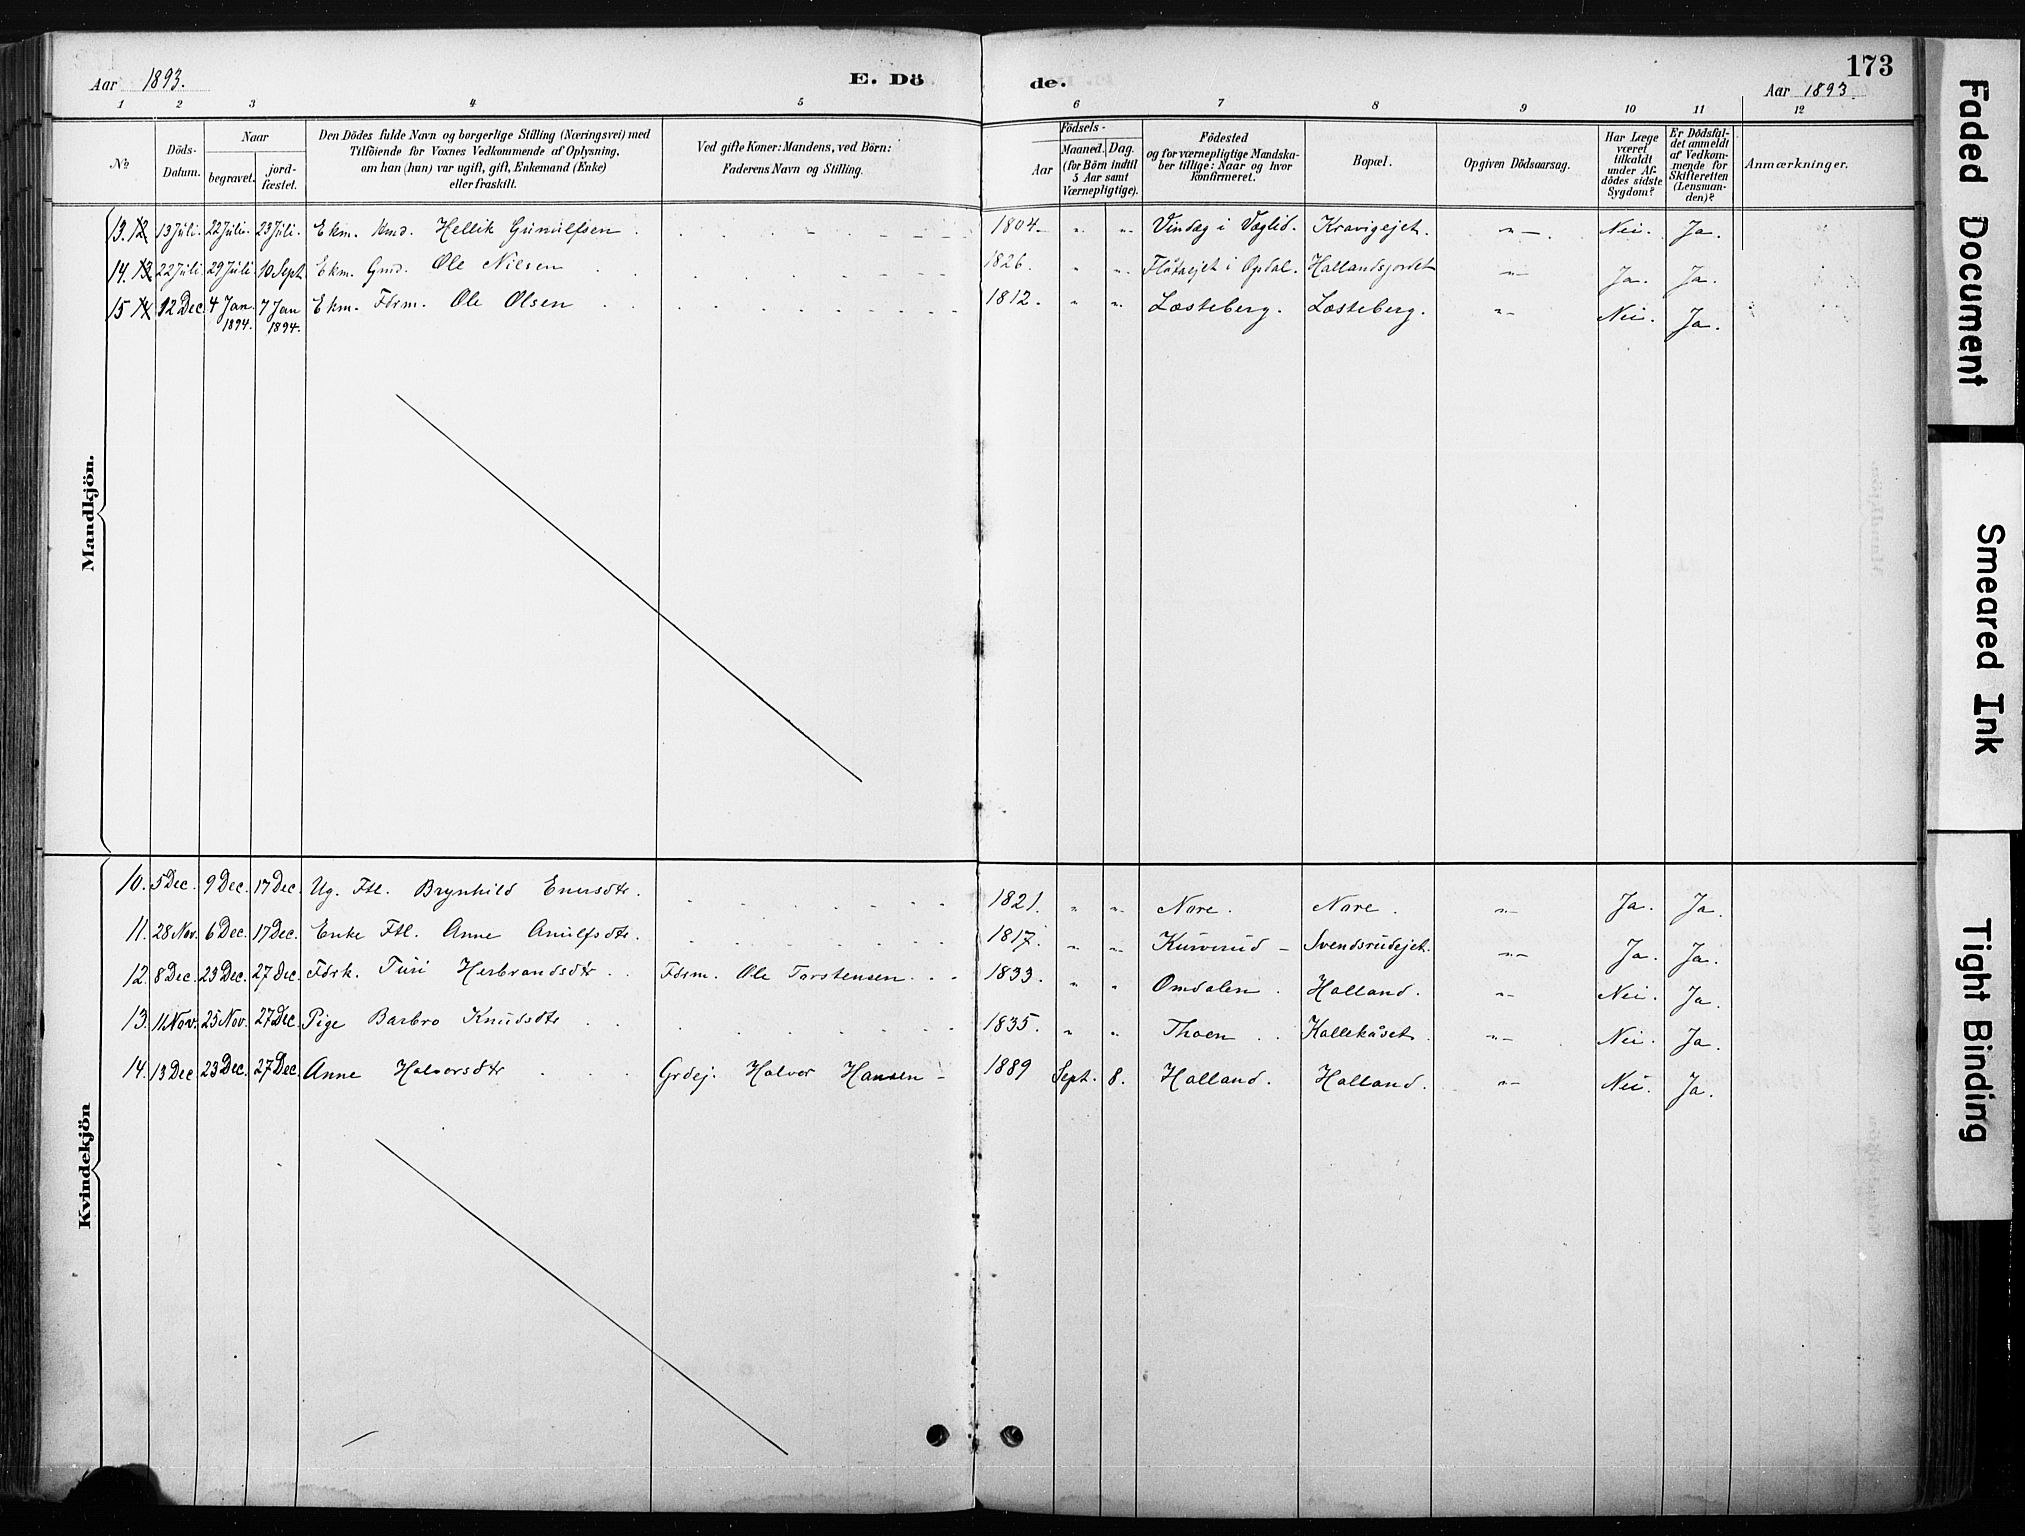 Aar 1893.
E. Dö
de.
Aar 1893.
173
1 2 3 4 5 6 7 8 9 10 11 12
No
Döds-Datum.
Naar
begravet.
jord-fæstet.
Den Dödes fulde Navn og borgerlige Stilling (Næringsvei) med
Tilföiende for Voxnes Vedkommende af Oplysning,
om han (hun) var ugift, gift, Enkemand (Enke)
eller fraskilt.
Ved gifte Koner: Mandens, ved Börn:
Faderens Navn og Stilling.
Födsels-
Aar
Maaned. Dag.
(for Börn indtil
5 Aar samt
Værnepligtige).
Födested
og for værnepligtige Mandska-
ber tillige: Naar og hvor
konfirmeret.
Bopæl.
Opgiven Dödsaarsag.
Har Læge
været
tilkaldt
under Af-
dödes sidste
Sygdom?
Er Dödsfal-
det anmeldt
af Vedkom-
mende for
Skifteretten
(Lensman-
den)?
Anmærkninger.
Mandkjön.
13. 12 13 Juli. 22 Juli. 23 Juli. Ekm. Hellik Gunulfsen 1804 " " Vindeg i Væglid. Kravigejet. -"- Nei. Ja.
14. 13 22 Juli. 29 Juli. 10 Sept. Ekm. Gmd. Ole Nilsen 1826. " " Flåtaejet i Opdal. Hallandsjordet -"- Ja. Ja.
15 14 12 Dec. 4 Jan. 1894. 7 Jan 1894. Ekm. Fdrm. Ole Olsen 1812. " " Læsteberg. Læsteberg. -"- Nei. Ja.
Kvindekjön
10. 5 Dec. 9 Dec. 17 Dec. Ug. Ftl. Brynhild Enersdtr. 1821. " " Nore. Nore. -"- Ja. Ja.
11. 28 Nov. 6 Dec. 17 Dec. Enke Ftl. Anne Anulfsdtr. 1817. " " Kurverud Svendsrudejet. -"- Ja. Ja.
12. 8 Dec. 23 Dec. 27 Dec. Fdrk. Turi Herbrandsdtr Fdrm. Ole Torstensen 1833. " " Omdalen. Halland. -"- Nei. Ja.
13. 11 Nov. 25 Nov. 27 Dec. Pige Barbro Knudsdtr 1835. " " Thoen Kallekåset -"- Nei. Ja.
14. 13 Dec 23 Dec. 27 Dec. Anne Halvorsdtr Grdej. Halvor Hansen 1889 Sept. 8. Halland. Halland. -"- Nei. Ja.
Faded Document
Smeared Ink
Tight Binding